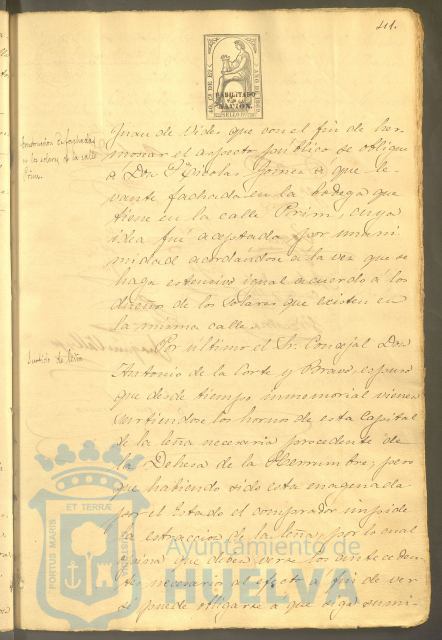 411.
HABILITADO
POR LA
NACION.
Construccion de fachadas
en los solares de la calle
Prim.
Juan de Vides que con el fin de her-
mosear el aspecto público se obligue
á Don Nicolas Gomez á que le-
vante fachada en la bodega que
tiene en la calle Prim, cuya
idea fué aceptada por unani-
midad acordandose á la vez que se
haga estensivo igual acuerdo á los
dueños de los solares que existen en
la misma calle.
Surtido de leña
Por último el Sr. Concejal Don
Antonio de la Corte y Bravo, espuso
que desde tiempo inmemorial vienen
surtiendose los hornos de esta Capital
de la leña necesaria procedente de
la Dehesa de la Herrumbre, pero
que habiendo sido esta enagenada
por el Estado el comprador impide
la estraccion de la leña, por lo cual
opina que deben verse los anteceden-
tes necesarios al efecto a fin de ver
si puede obligarse a que siga sumi-
PORTUS MARIS ET TERRÆ CUSTODIA
Ayuntamiento de
HUELVA